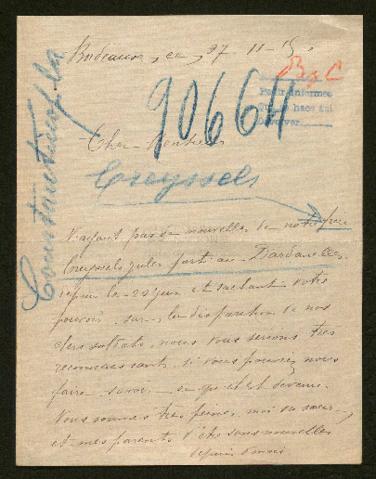 Bordeaux, ce, 27 11-15
BzC
Constantinople
90664
Pour informe
Cher Monsieur
Creyssels
N'ayant pas de nouvelles de notre frere
Creyssels Jules parti au Dardanelles
depuis le 22 juin et sachant votre
pouvoir sur la disparition de nos
chers soldats, nous vous serions très
reconnaissants si vous pouvez nous
faire savoir ce qu'il est devenu.
Nous sommes très peinés, moi sa sœur,
et mes parents d'être sans nouvelles
depuis 5 mois